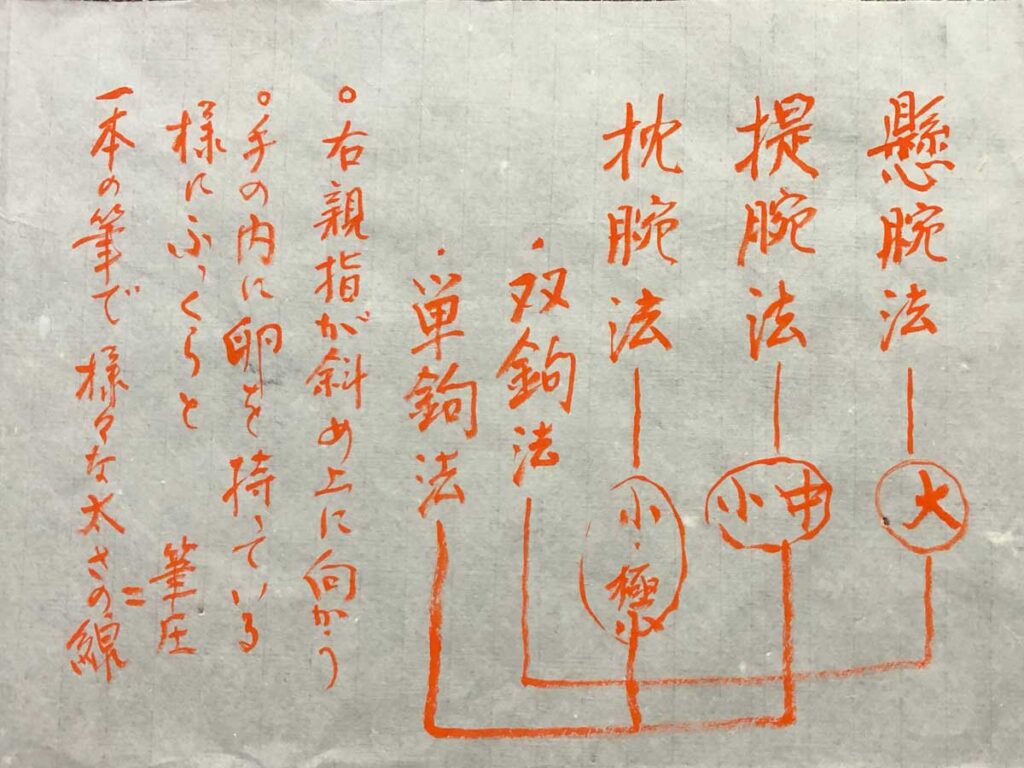 懸腕法
大
提腕法
中小
枕腕法
小・極小
・双鉤法
・単鉤法
○右親指が斜め上に向かう
○手の内に卵を持っている
様にふっくらと
筆圧
=
一本の筆で様々な太さの線